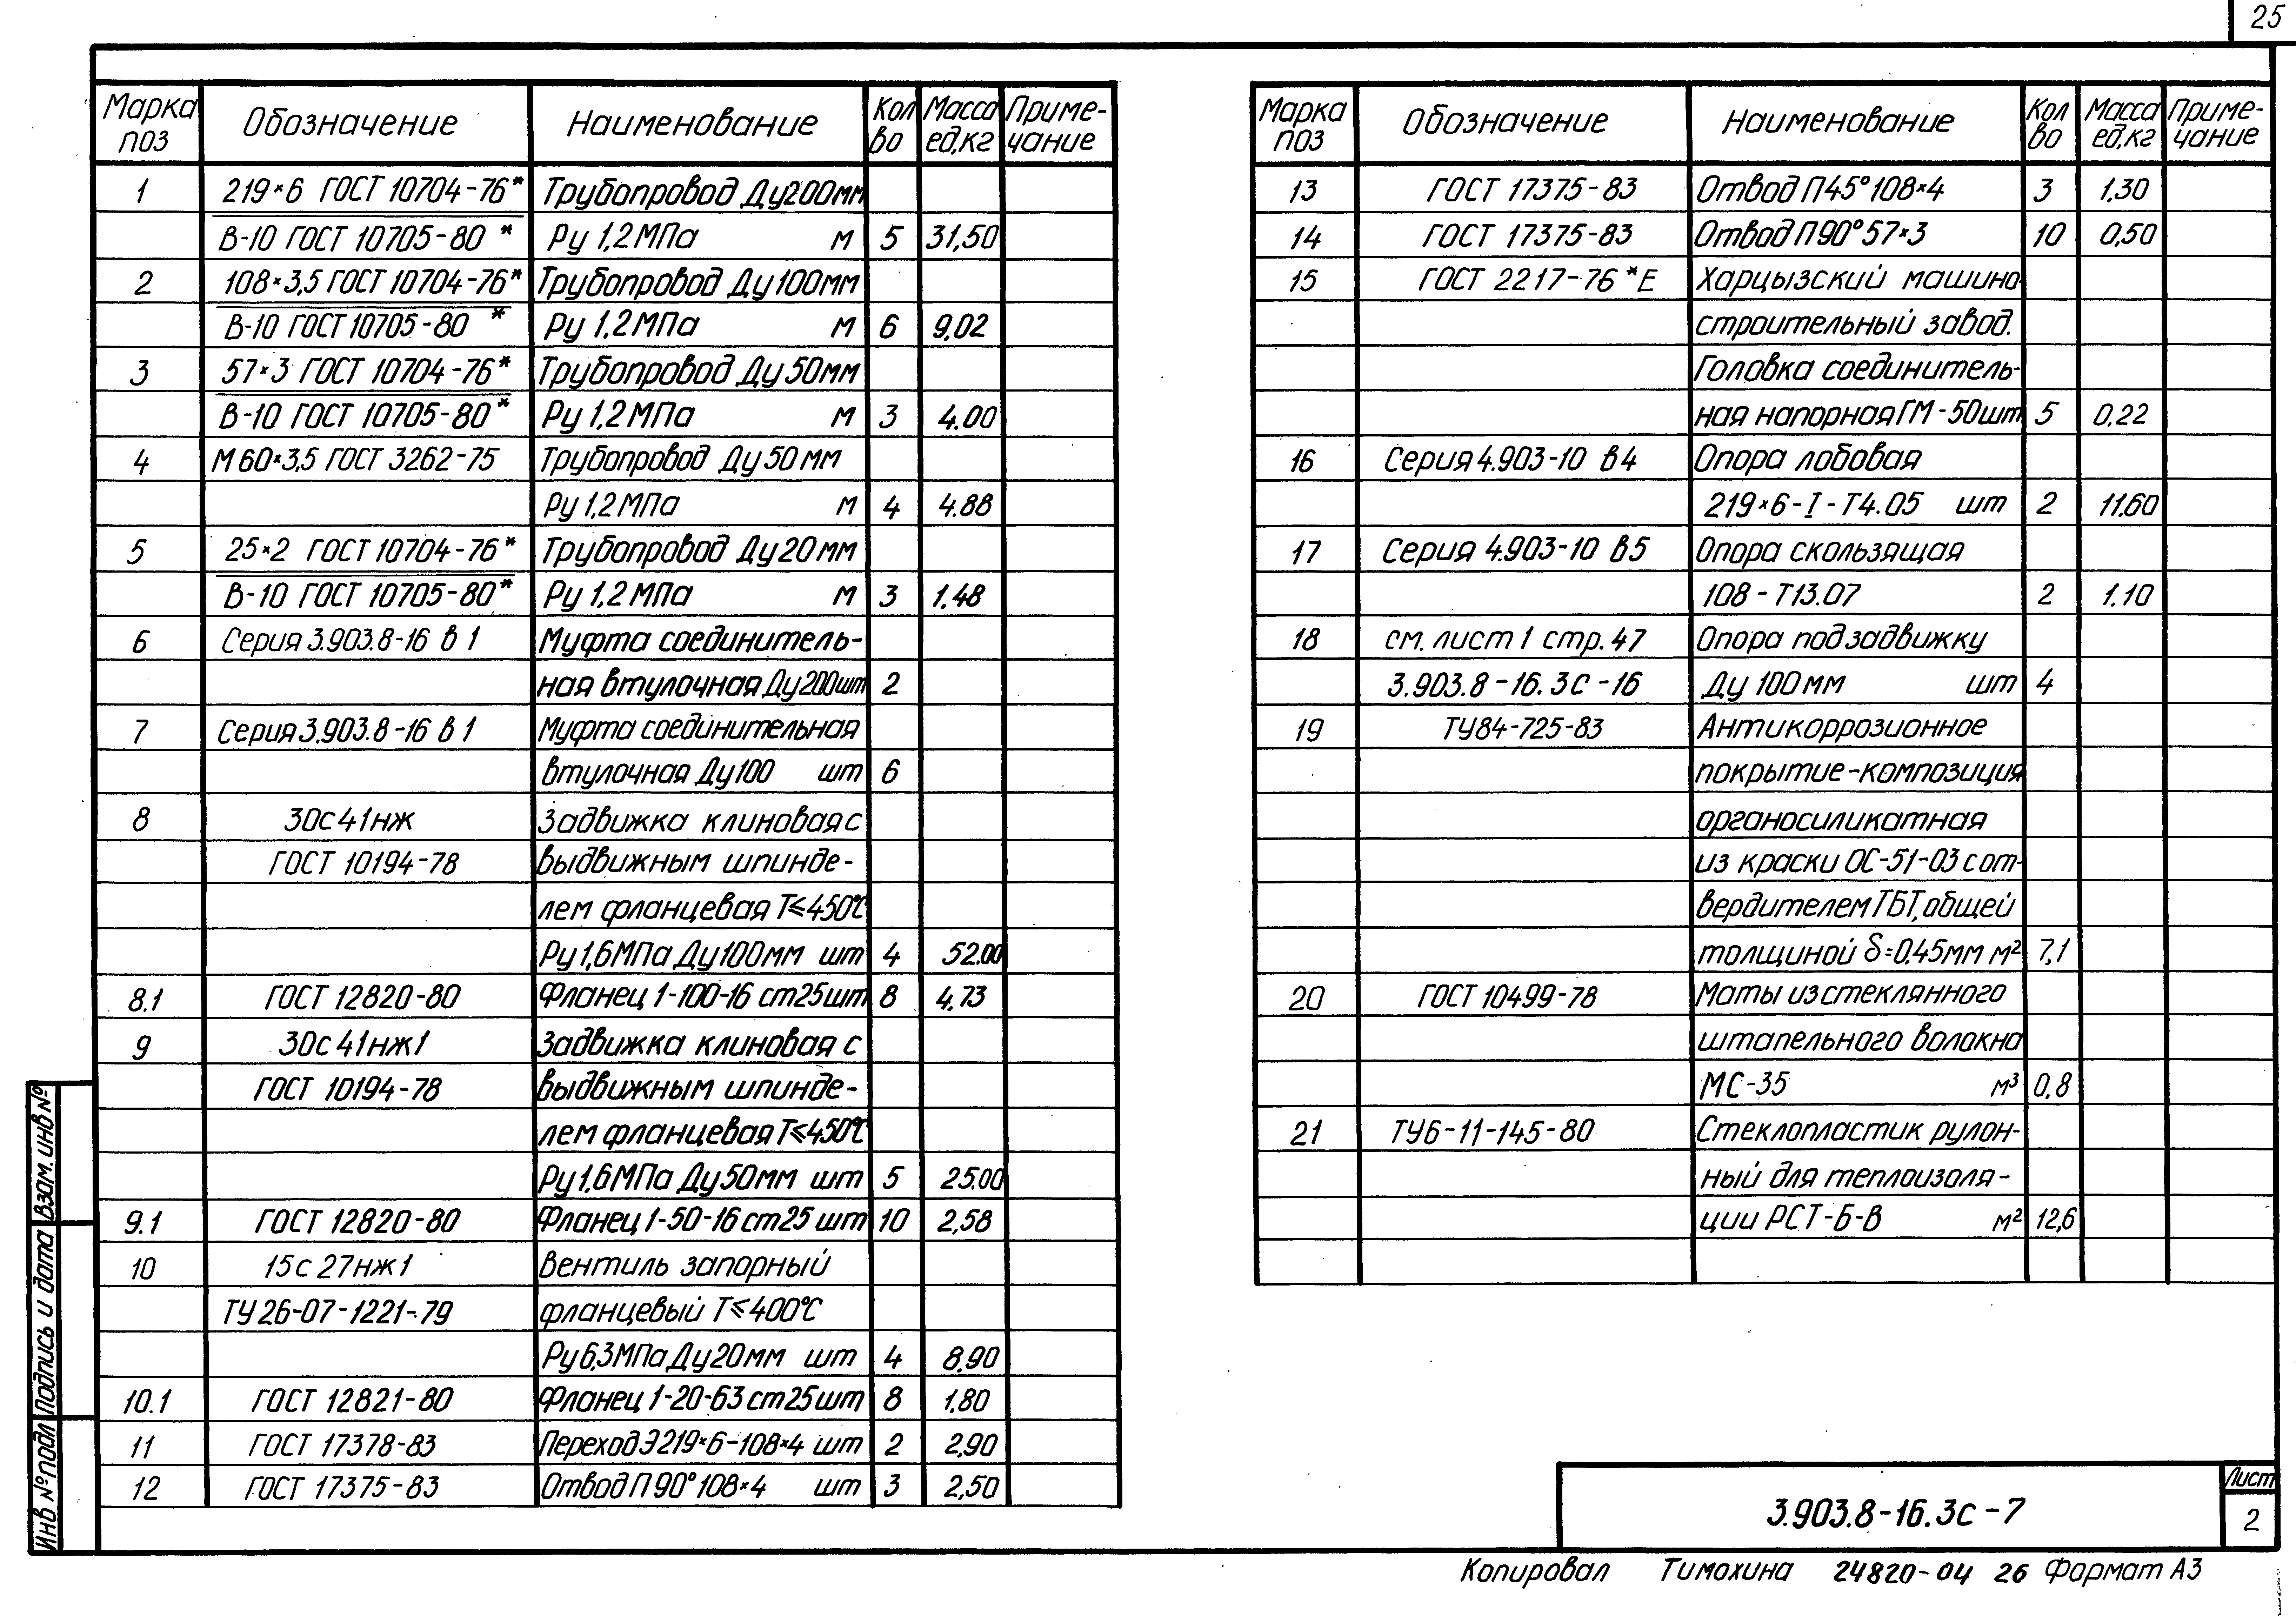 25
Марка поз Обозначение Наименование Кол во Масса ед,кг Приме-чание
1 219×6 ГОСТ 10704-76* Трубопровод Ду200мм
В-10 ГОСТ 10705-80* Ру 1,2МПа м 5 31,50
2 108×3,5 ГОСТ 10704-76* Трубопровод Ду100мм
В-10 ГОСТ 10705-80* Ру 1,2МПа м 6 9.02
3 57×3 ГОСТ 10704-76* Трубопровод Ду50мм
В-10 ГОСТ 10705-80* Ру 1,2МПа м 3 4.00
4 М60×3,5 ГОСТ 3262-75 Трубопровод Ду50мм
Ру 1,2МПа м 4 4.88
5 25×2 ГОСТ 10704-76* Трубопровод Ду20мм
В-10 ГОСТ 10705-80* Ру 1.2МПа м 3 1.48
6 Серия 3.903.8-16 в 1 Муфта соединитель-
ная втулочная Ду200шт 2
7 Серия 3.903.8-16 в 1 Муфта соединительная
втулочная Ду100 шт 6
8 30с41нж Задвижка клиновая с
ГОСТ 10194-78 выдвижным шпинде-
лем фланцевая Т≤450°С
Ру1,6МПа Ду100мм шт 4 52.00
8.1 ГОСТ 12820-80 Фланец 1-100-16 ст25шт 8 4,73
9 30с41нж1 Задвижка клиновая с
ГОСТ 10194-78 выдвижным шпинде-
лем фланцевая Т≤450°С
Ру1,6МПа Ду50мм шт 5 25.00
9.1 ГОСТ 12820-80 Фланец 1-50-16 ст25 шт 10 2,58
10 15с27нж1 Вентиль запорный
ТУ26-07-1221-79 фланцевый Т≤400°С
Ру6,3МПа Ду20мм шт 4 8,90
10.1 ГОСТ 12821-80 Фланец 1-20-63 ст25шт 8 1,80
11 ГОСТ 17378-83 Переход Э219×6-108×4 шт 2 2,90
12 ГОСТ 17375-83 Отвод П90° 108×4 шт 3 2,50
Марка поз Обозначение Наименование Кол во Масса ед,кг Приме-чание
13 ГОСТ 17375-83 Отвод П45° 108×4 3 1,30
14 ГОСТ 17375-83 Отвод П90° 57×3 10 0,50
15 ГОСТ 2217-76*Е Харцызский машино-
строительный завод.
Головка соединитель-
ная напорная ГМ-50шт 5 0,22
16 Серия 4.903-10 в4 Опора лобовая
219×6-I-Т4.05 шт 2 11.60
17 Серия 4.903-10 в5 Опора скользящая
108-Т13.07 2 1.10
18 см. лист 1 стр.47 Опора под задвижку
3.903.8-16.3с-16 Ду 100мм шт 4
19 ТУ84-725-83 Антикоррозионное
покрытие-композиция
органосиликатная
из краски ОС-51-03 с от-
вердителем ТБТ, общей
толщиной δ=0.45мм м² 7,1
20 ГОСТ 10499-78 Маты из стеклянного
штапельного волокна
МС-35 м³ 0,8
21 ТУ6-11-145-80 Стеклопластик рулон-
ный для теплоизоля-
ции РСТ-Б-В м² 12,6
Инв № подл Подпись и дата Взам. инв №
3.903.8-16.3с-7
Лист
2
Копировал Тимохина 24820-04 26 Формат А3